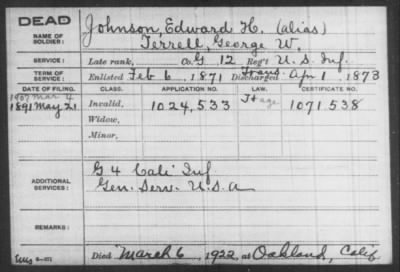 DEAD
NAME OF SOLDIER:
Johnson, Edward H. (alias)
Terrell, George W.
SERVICE:
Late rank, Co. G 12 Reg't U. S. Inf.
TERM OF SERVICE:
Enlisted Feb 6, 1871 Discharged Trans. Apr 1, 1873
DATE OF FILING. CLASS. APPLICATION NO. LAW. CERTIFICATE NO.
1907 Mar 4
1891 May 21 Invalid, 1024,533 age 1071 538
Widow,
Minor,
ADDITIONAL SERVICES:
G 4 Cali Inf
Gen. Serv. U.S.A
REMARKS:
Died March 6, 1922, at Oakland, Calif